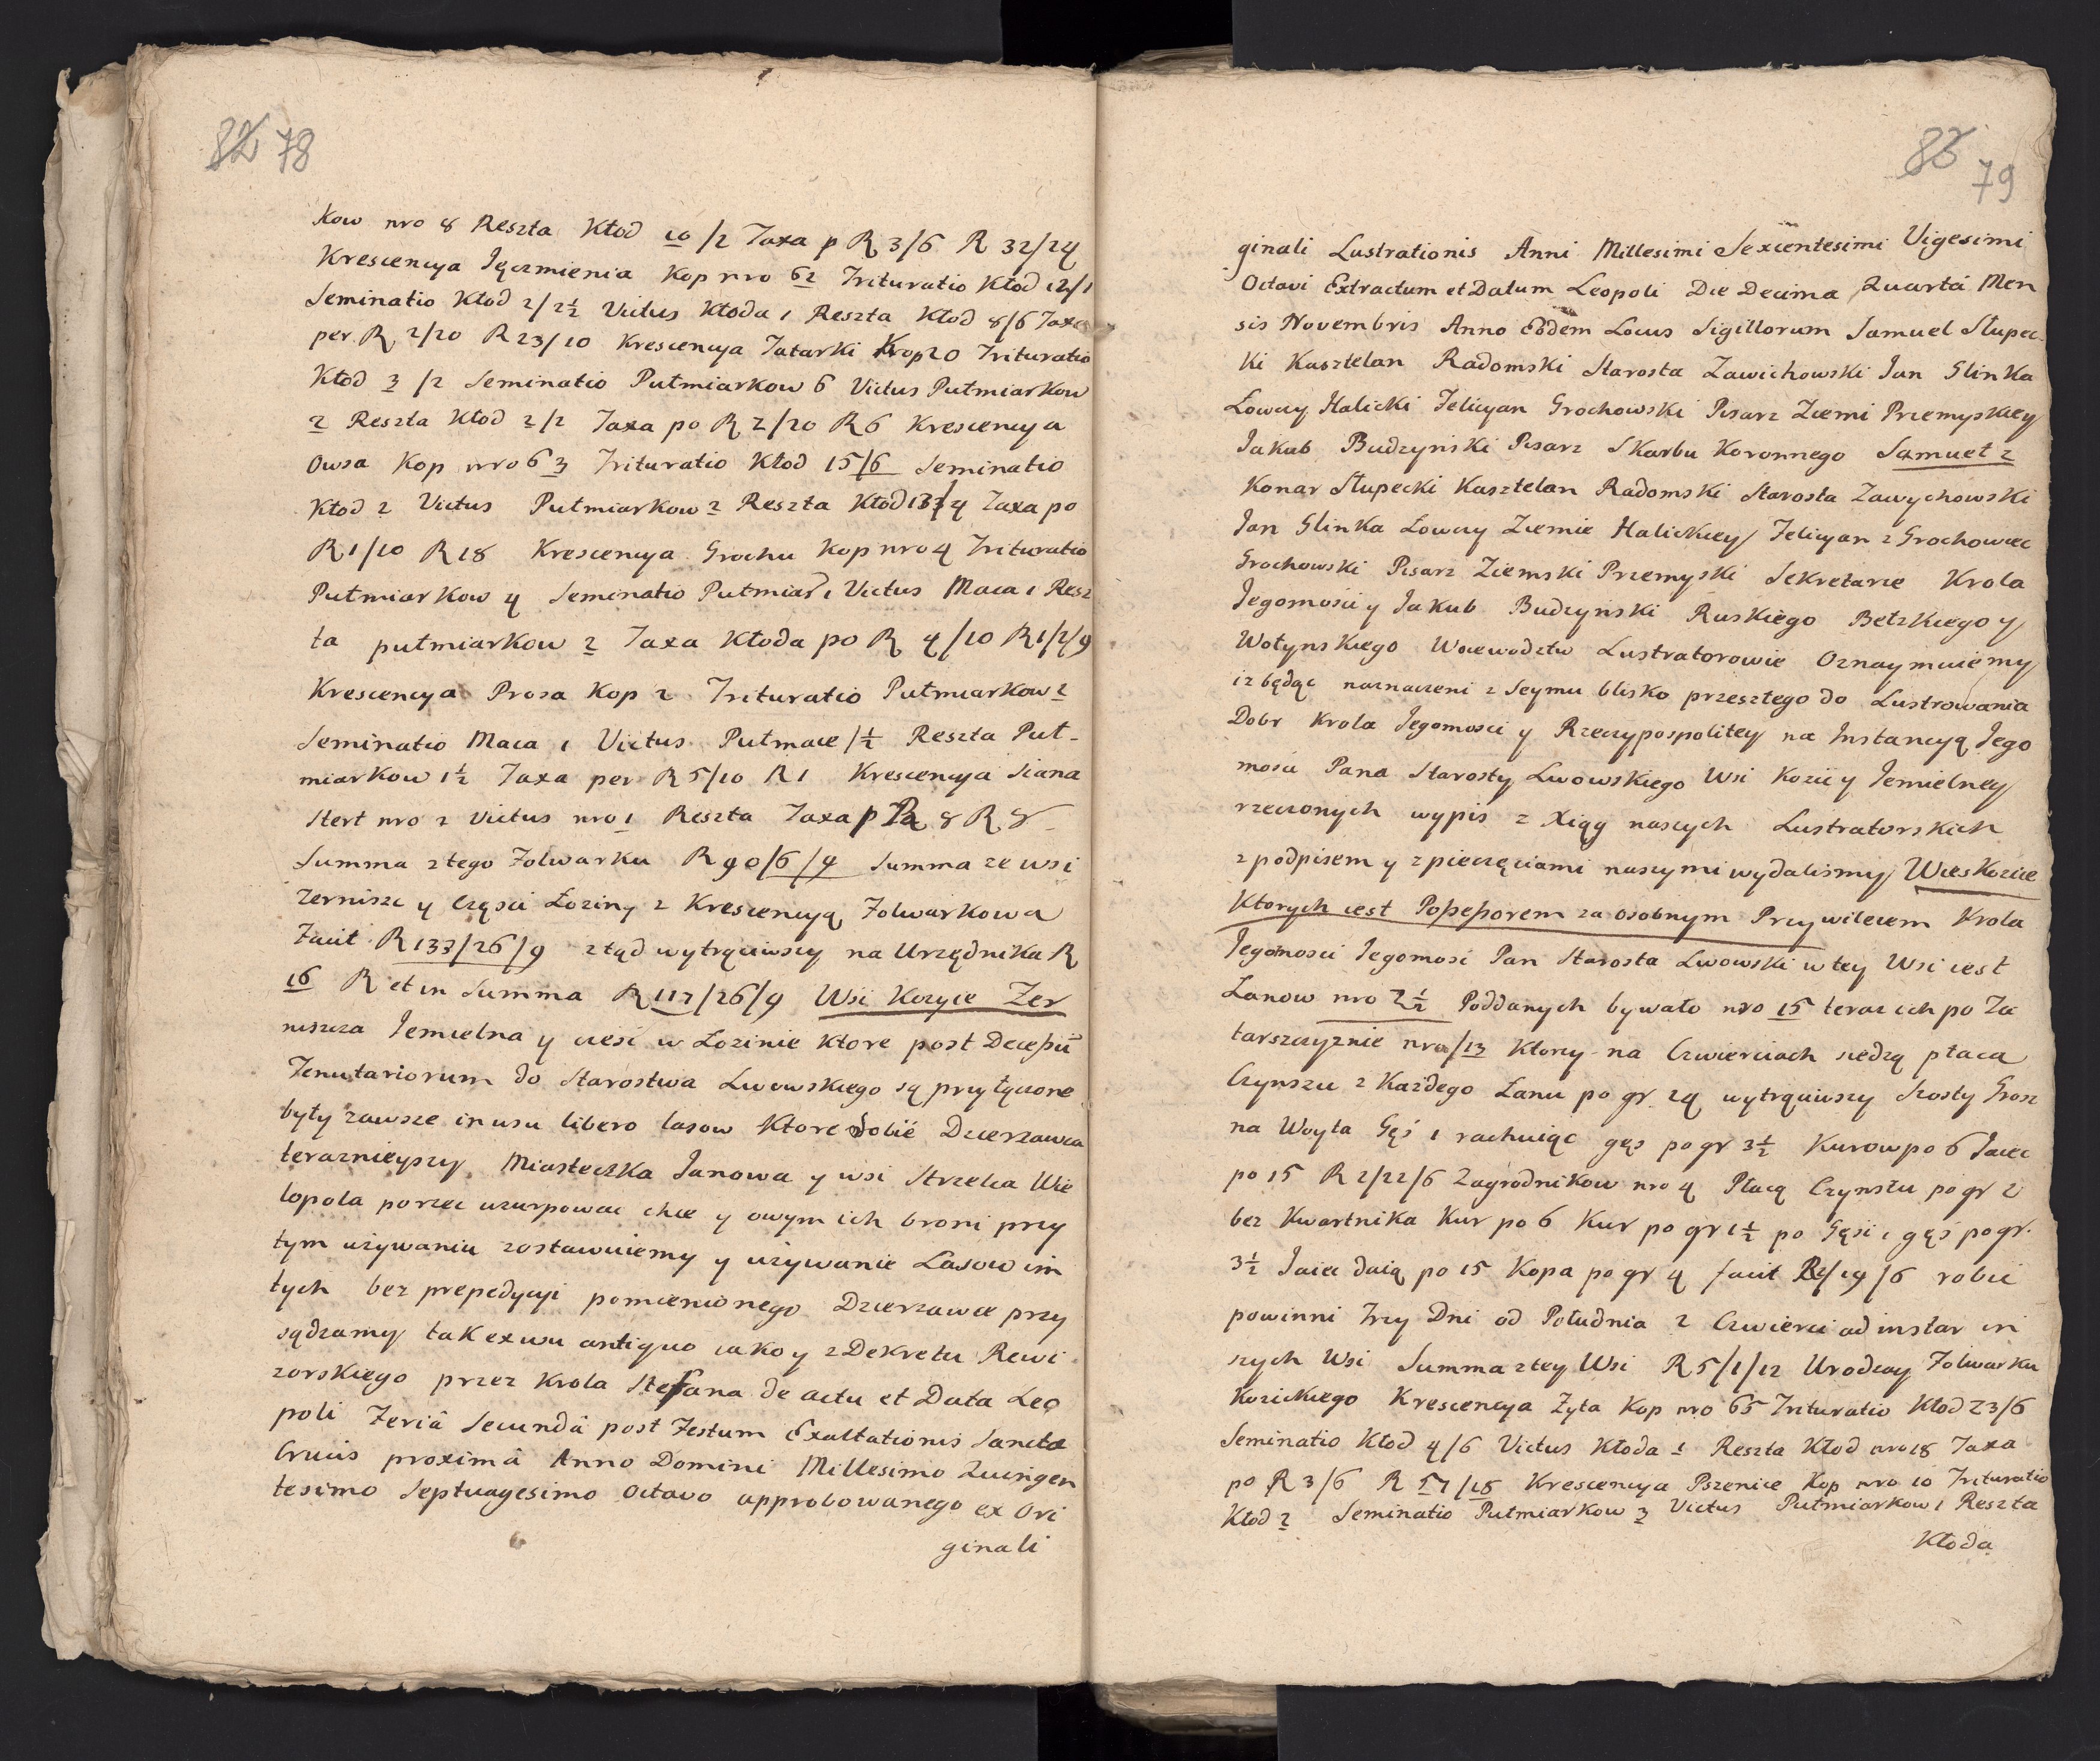 82 78
kow nro 8 Reszta Kłod 10/2 Taxa p R 3/6 R 32/24
Krescencya Jęczmienia Kop nro 62 Trituratio Kłod 12/1
Seminatio Kłod 2/2½ Victus Kłoda 1 Reszta Kłod 8/6 Taxa
per R 2/20 R 23/10 Krescencya Tatarki Kop 20 Trituratio
Kłod 3/2 Seminatio Putmiarkow 6 Victus Putmiarkow
2 Reszta Kłod 2/2 Taxa po R 2/20 R 6 Krescencya
Owsa Kop nro 63 Trituratio Kłod 15/6 Seminatio
Kłod 2 Victus Putmiarkow 2 Reszta Kłod 13/4 Taxa po
R 1/10 R 18 Krescencya Grochu Kop nro 4 Trituratio
Putmiarkow 4 Seminatio Putmiar 1 Victus Maca 1 Resz
ta putmiarkow 2 Taxa Kłoda po R 4/10 R 1/2/9
Krescencya Prosa Kop 2 Trituratio Putmiarkow 2
Seminatio Maca 1 Victus Putmace /½ Reszta Put-
miarkow 1½ Taxa per R 5/10 R 1 Krescencya Siana
Stert nro 2 Victus nro 1 Reszta Taxa p R 8 R 8
Summa z tego Folwarku R 90/6/9 Summa ze wsi
Zernisz y Części Łoziny z Krescencyą Folwarkowa
Facit R 133/26/9 ztąd wytrąciwszy na Urzędnika R
16 R et in Summa R 117/26/9 Wsi Kozyce Zer
niszcza Jemielna y czesć w Łozinie ktore post Decessū
Tenutariorum do Starostwa Lwowskiego są przyłączone
były zawsze in usu libero lasow ktore sobie Dzierzawca
teraznieyszy Miasteczka Janowa y wsi Strzelca Wie
lopola porzec uzurpowac chce y owym ich broni przy
tym używaniu zostawuiemy y używanie Lasow im
tych bez prepedycyi pomienionego Dzierzawce przy
sądzamy tak ex usu antiquo iako y z Dekretu Rewi
zorskiego przez Krola Stefana de actu et Data Leo
poli Feriâ Secundâ post Festum Exaltationis Sanctæ
Crucis proximâ Anno Domini Millesimo Quingen
tesimo Septuagesimo Octavo approbowanego ex Ori
ginali
83 79
ginali Lustrationis Anni Millesimi Sexcentesimi Vigesimi
Octavi Extractum et Datum Leopoli Die Decima Quartâ Men
sis Novembris Anno Eodem Locus Sigillorum Samuel Słupec
ki Kasztelan Radomski Starosta Zawichowski Jan Glinka
Łowczy Halicki Felicyan Grochowski Pisarz Ziemi Przemyskiey
Jakub Budzynski Pisarz Skarbu Koronnego Samuel z
Konar Słupecki Kasztelan Radomski Starosta Zawychowski
Jan Glinka Łowczy Ziemie Halickiey Felicyan z Grochowiec
Grochowski Pisarz Ziemski Przemyski Sekretarze Krola
Jegomosci y Jakub Budzynski Ruskiego Betzkiego y
Wołynskiego Woiewodztw Lustratorowie Oznaymuiemy
iz będąc naznaczeni z Seymu blisko przeszłego do Lustrowania
Dobr Krola Jegomosci y Rzeczypospolitey na Instancyą Jego
mosci Pana Starosty Lwowskiego Wsi Kozic y Jemielney
rzeczonych wypis z Xiąg naszych Lustratorskich
z podpisem y z pieczęciami naszymi wydalismy Wies Kozice
Ktorych iest Possessorem za osobnym Przywileiem Krola
Jegomosci Jegomosc Pan Starosta Lwowski w tey Wsi iest
Łanow nro 2½ Poddanych bywało nro 15 teraz ich po Ta
tarszczyznie nro/13 ktorzy na Czwierciach siedzą płaca
Czynszu z Każdego Łanu po gr 24 wytrąciwszy szosty Grosz
na Woyta Gęś 1 rachuiąc gęs po gr 3½ Kurow po 6 Jaiec
po 15 R 2/22/6 Zagrodnikow nro 4 Płacą Czynszu po gr 2
bez Kwartnika Kur po 6 Kur po gr 1½ po Gęsi 1 gęś po gr.
3½ Jaiec daią po 15 Kopa po gr 4 facit R 2/19/6 robić
powinni Trzy Dni od Południa z Czwierci ad instar in
szych Wsi Summa z tey Wsi R 5/1/12 Urodzay Folwarku
Kozickiego Krescencya Zyta Kop nro 65 Trituratio Kłod 23/6
Seminatio Kłod 4/6 Victus Kłoda 1 Reszta Kłod nro 18 Taxa
po R 3/6 R 57/18 Krescencya Pszenice Kop nro 10 Trituratio
Kłod 2 Seminatio Putmiarkow 3 Victus Putmiarkow 1 Reszta
Kłoda